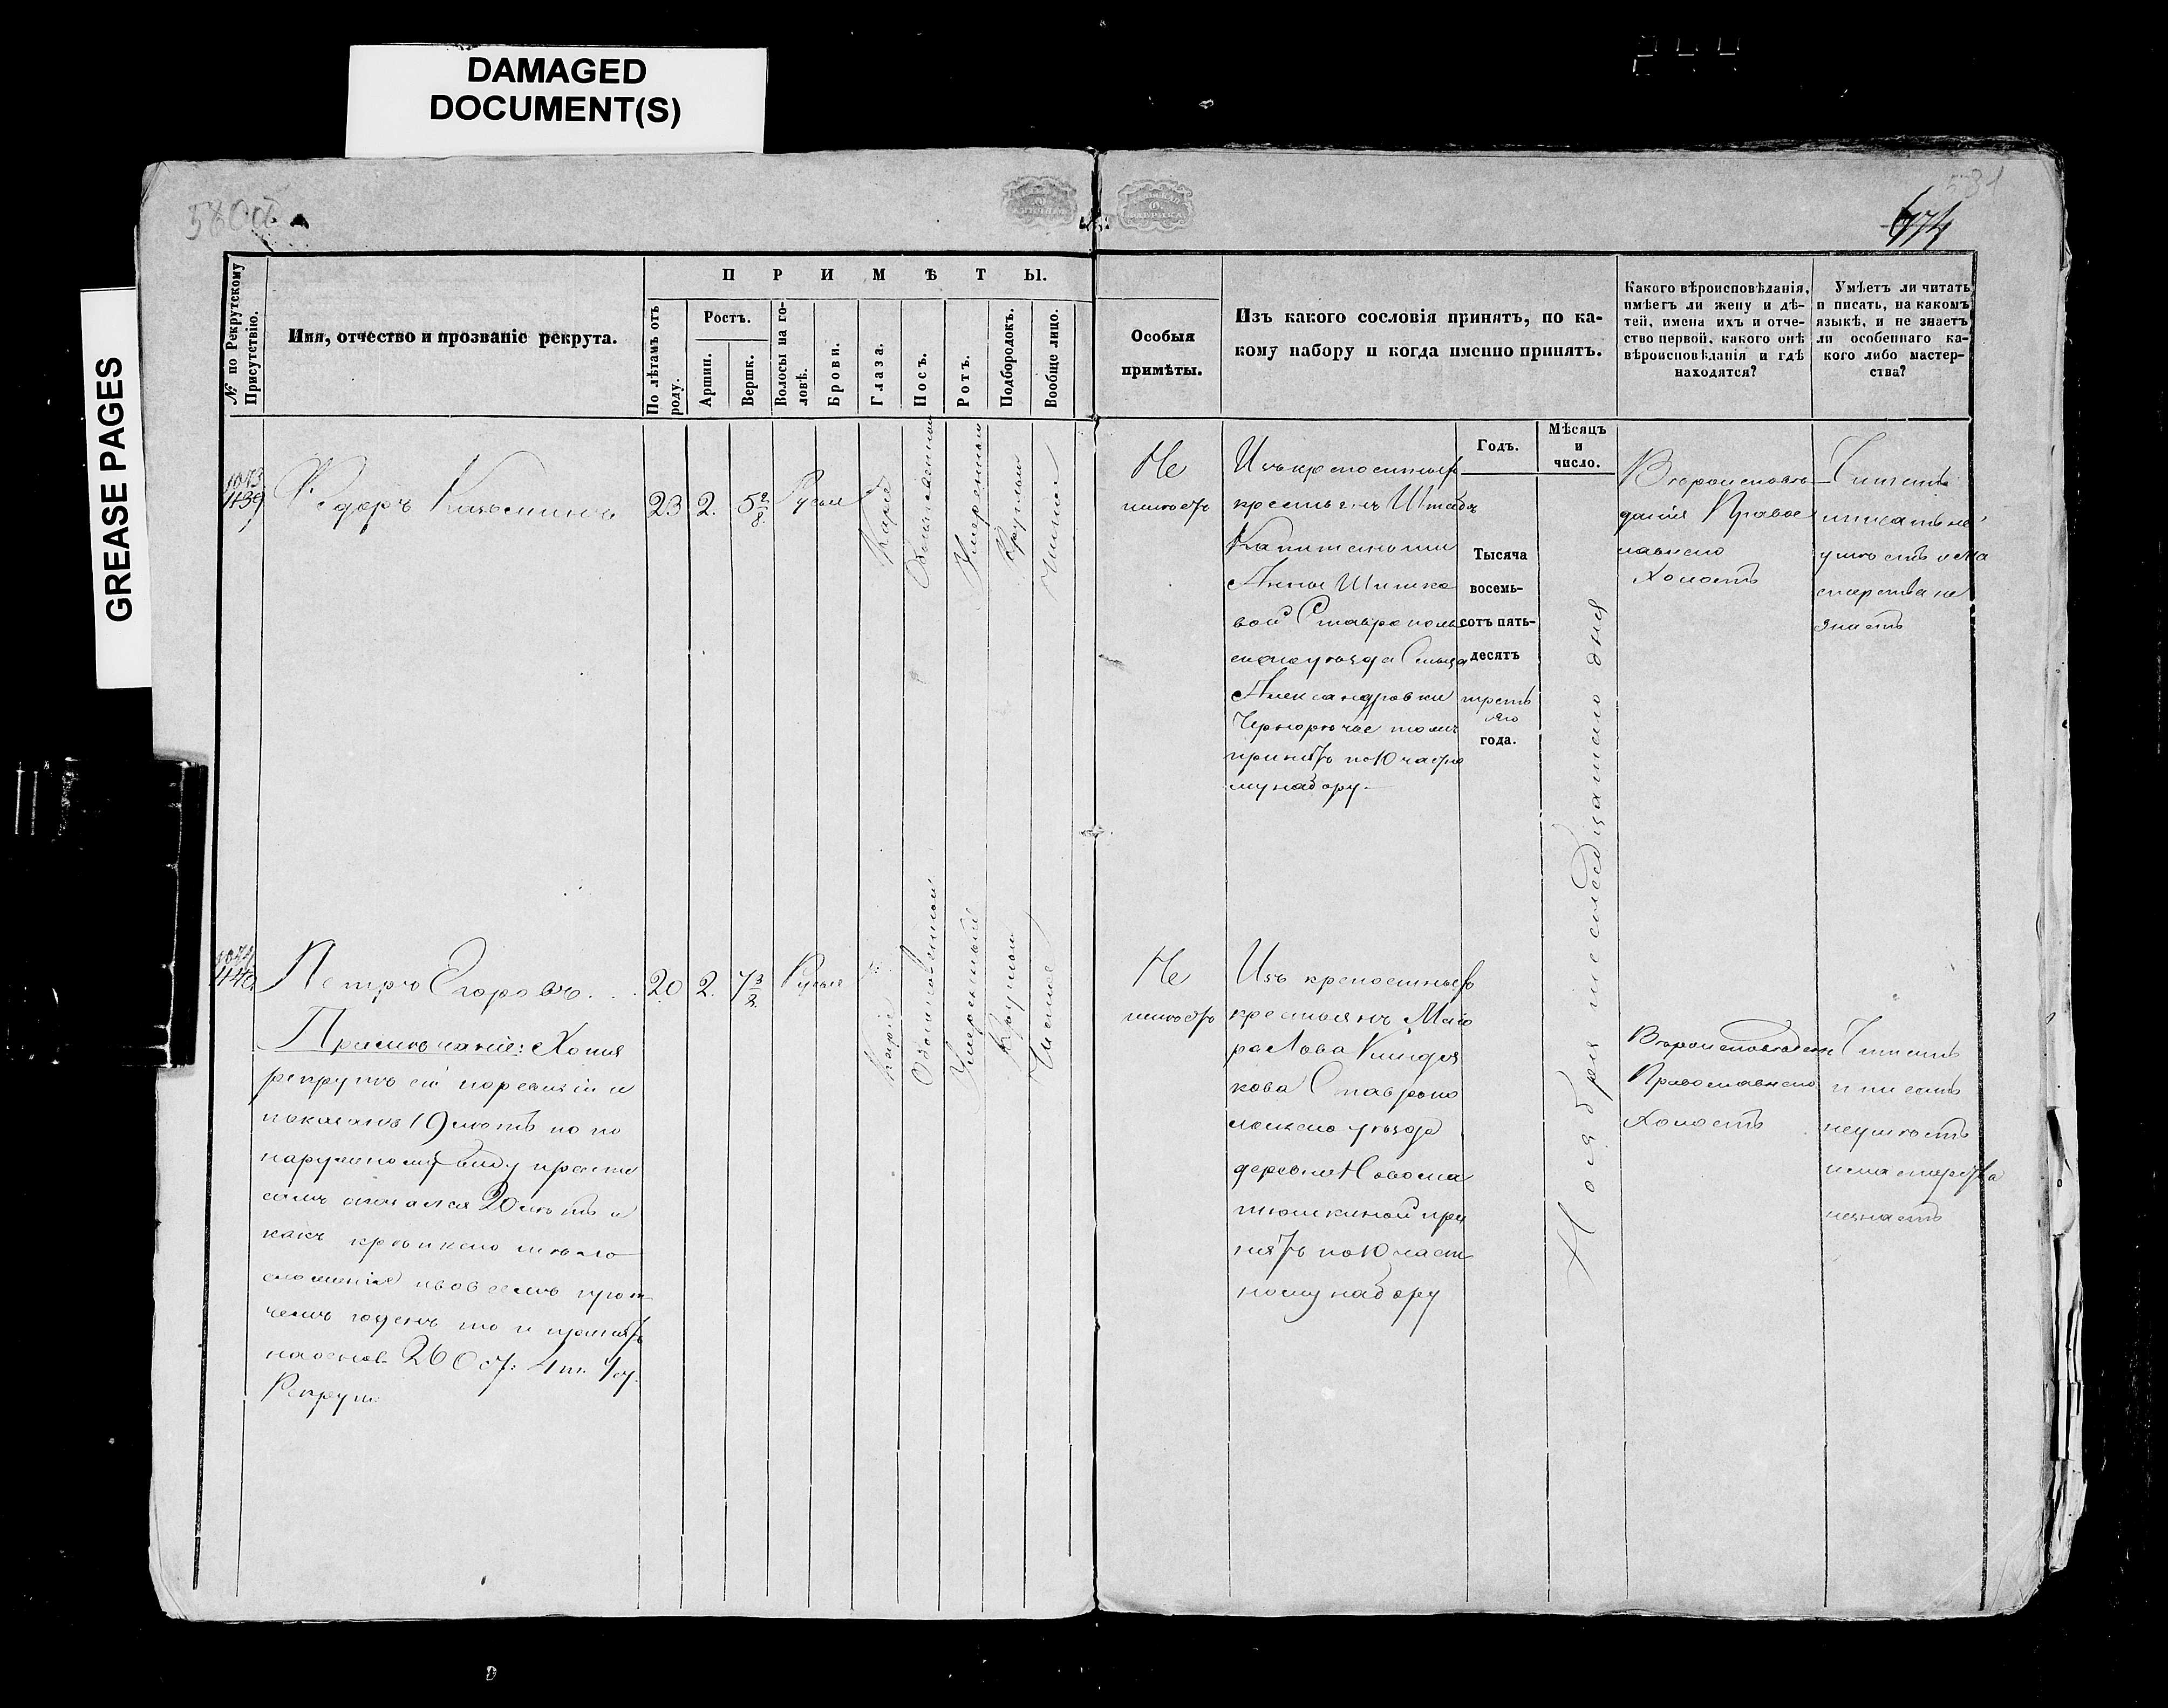 DAMAGED
DOCUMENT(S)
GREASE PAGES
580об.
581
674
№ по Рекрутскому
Присутствію.
Имя, отчество и прозваніе рекрута.
ПРИМѢТЫ.
По лѣтамъ отъ
роду.
Ростъ.
Аршин.
Вершк.
Волосы на го-
ловѣ.
Брови.
Глаза.
Носъ.
Ротъ.
Подбородокъ.
Вообще лицо.
Особыя
примѣты.
Изъ какого сословія принятъ, по ка-
кому набору и когда именно принятъ.
Какого вѣроисповѣданія,
имѣетъ ли жену и дѣ-
тей, имена ихъ и отче-
ство первой, какого онѣ
вѣроисповѣданія и гдѣ
находятся?
Умѣетъ ли читать
и писать, на какомъ
языкѣ, и не знаетъ
ли особеннаго ка-
кого либо мастер-
ства?
Годъ.
Мѣсяцъ
и
число.
1073
439
Федоръ Козьминъ
23
2.
5 2/8
Русые
Каріе
Обыкновенный
Умѣренный
Круглый
Чистое
Не
имѣетъ
Изъ крепостныхъ
крестьянъ Штабъ
Капитанши
Анны Шишко
вой Ставрополь
скаго уѣзда Сельца
Александровки
Чернорѣчье тожъ
принятъ по 10 частно
му набору.
Тысяча
восемь-
сотъ пять-
десятъ
треть
яго
года.
Ноября шестнадцатаго дня
Вѣроисповѣ
данія Право
славнаго
Холостъ
Читать
писать не
умѣетъ и ма
стерства не
знаетъ
1074
440
Петръ Егоровъ
20
2.
7 3/2
Русые
Каріе
Обыкновенный
Умѣренный
Круглый
Чистое
Примѣчаніе: Хотя
рекрутъ сей по ревизіи и
показанъ 19 лѣтъ но по
наружному виду присут
самъ оказался 20 лѣтъ и
какъ крѣпкаго тѣло
сложенія и во всемъ проч
чемъ годенъ то и принятъ
на основ. 26 Ст: 4 т. 1 су.
Рекрут.
Не
имѣетъ
Изъ крепостныхъ
крестьянъ Маіо
ра Лова Киндя
кова Ставропо
льскаго уѣзда
деревни Новома
тюшкиной при
нятъ по 10 част
ному набору
Вѣроисповѣданія
Православнаго
Холостъ
Читать
писать
неумѣетъ
и мастерства
незнаетъ